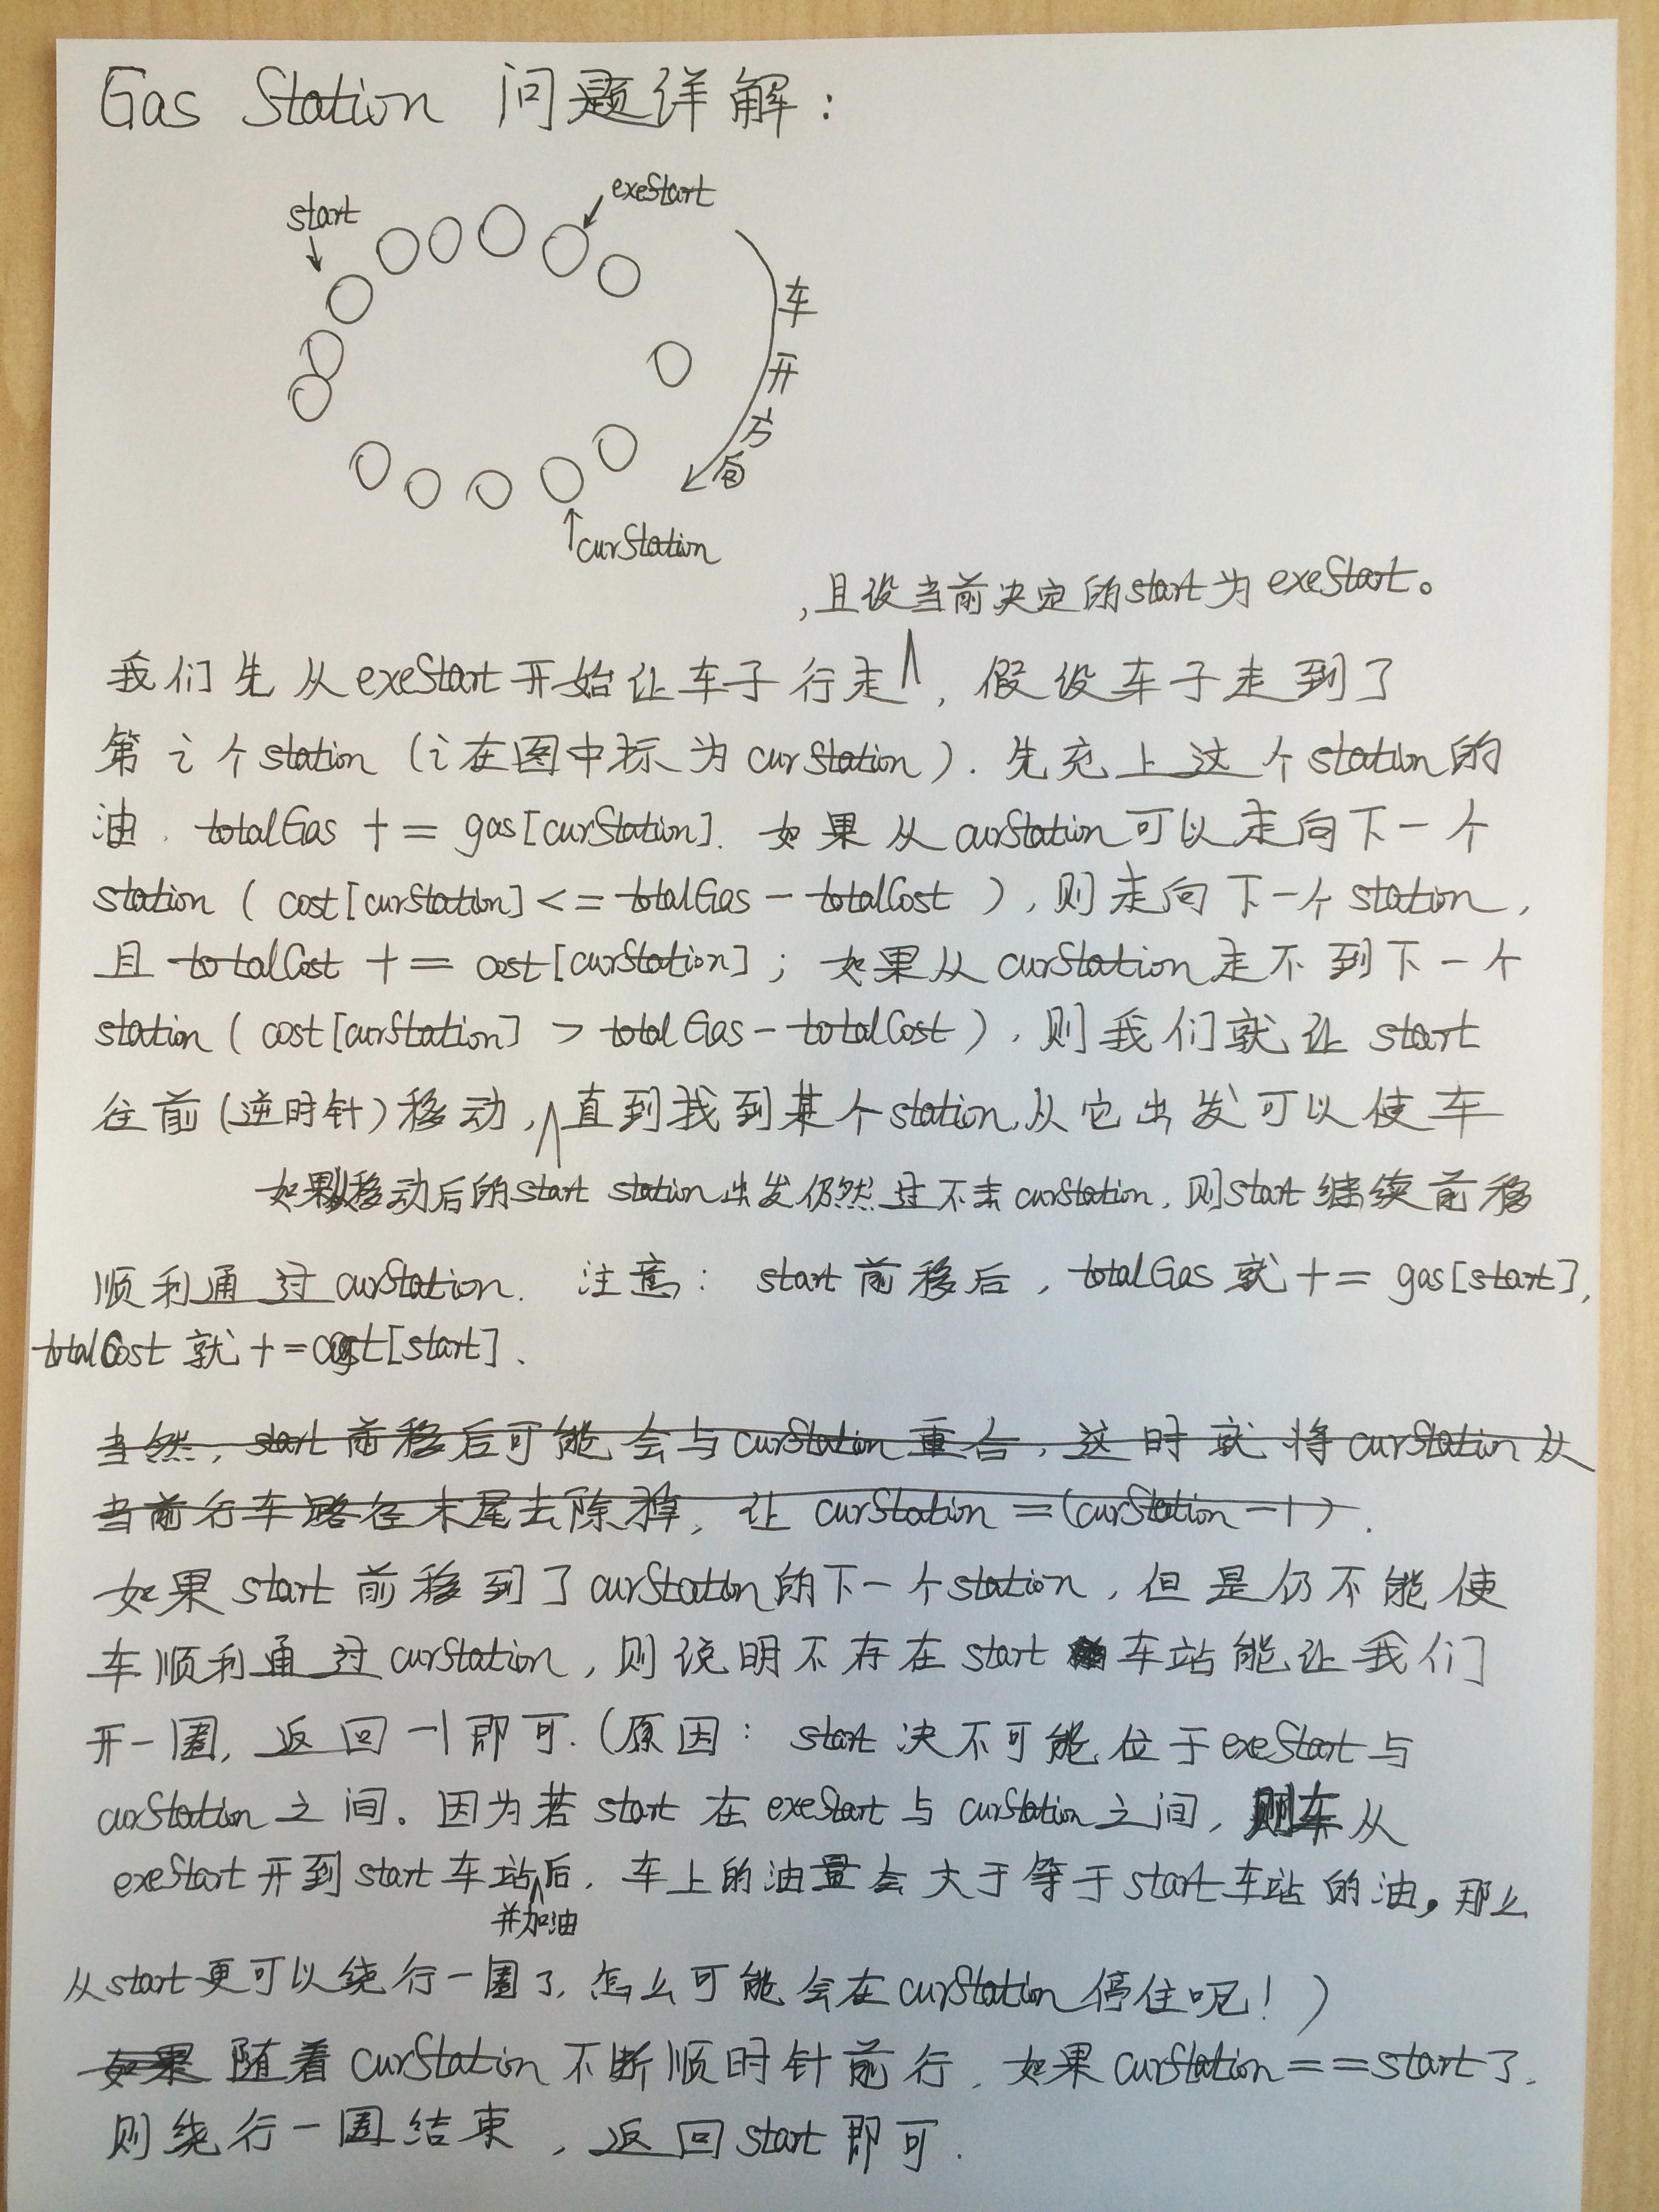 Gas Station 问题详解：
start
exeStart
curStation
车开方向
，且设当前决定的start为exeStart。
我们先从exeStart开始让车子行走∧，假设车子走到了
第i个station（i在图中标为curStation）.先充上这个station的
油，totalGas += gas[curStation]. 如果从curStation可以走向下一个
station（cost[curStation] <= totalGas - totalCost），则走向下一个station，
且 totalCost += cost[curStation]；如果从curStation走不到下一个
station（cost[curStation] > totalGas - totalCost），则我们就让start
往前（逆时针）移动，∧直到找到某个station,从它出发可以使车
如果移动后的start station出发仍然过不去curStation，则start继续前移
顺利通过curStation. 注意：start前移后，totalGas就+= gas[start],
totalCost就+=cost[start].
当然，start前移后可能会与curStation重合，这时就将curStation从
当前行车路径末尾去除掉，让curStation =(curStation-1).
如果start前移到了curStation的下一个station，但是仍不能使
车顺利通过curStation，则说明不存在start车站能让我们
开一圈，返回-1即可.（原因：start决不可能位于exeStart与
curStation之间。因为若start在exeStart与curStation之间，则车从
exeStart开到start车站∧后，车上的油量会大于等于start车站的油。那么
并加油
从start更可以绕行一圈了，怎么可能会在curStation停住呢！）
如果随着curStation不断顺时针前行，如果curStation==start了.
则绕行一圈结束，返回start即可.